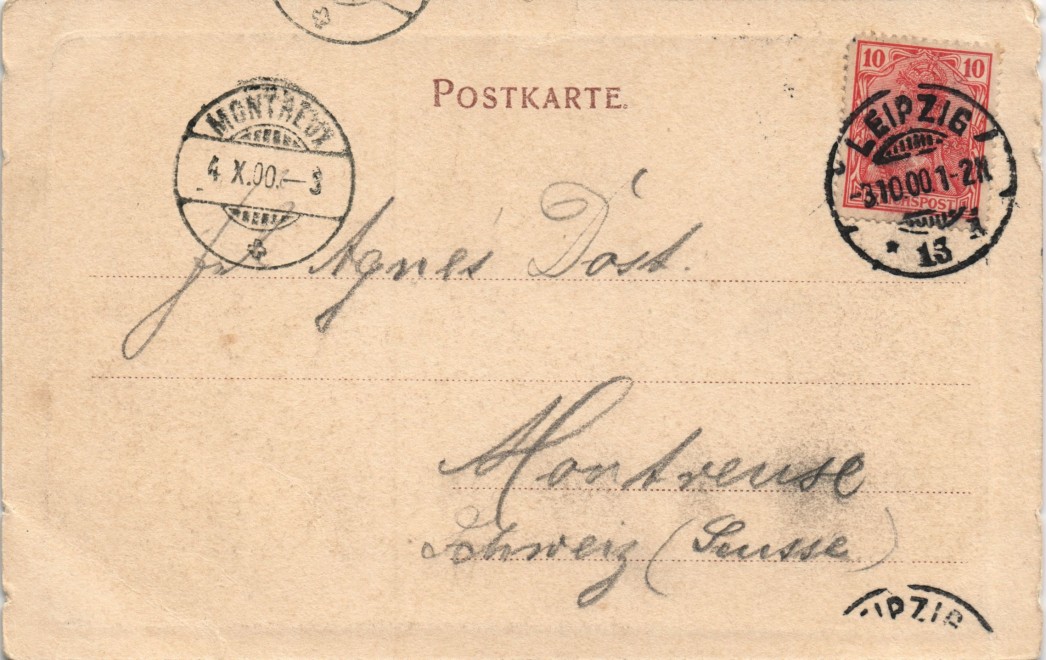 POSTKARTE.
10 10
REICHSPOST
LEIPZIG
-3.10.00.1-2N
* 13
MONTREUX
4. X.00.-3
Agnes Dost.
Montreuse
Schweiz (Suisse)
IPZIG